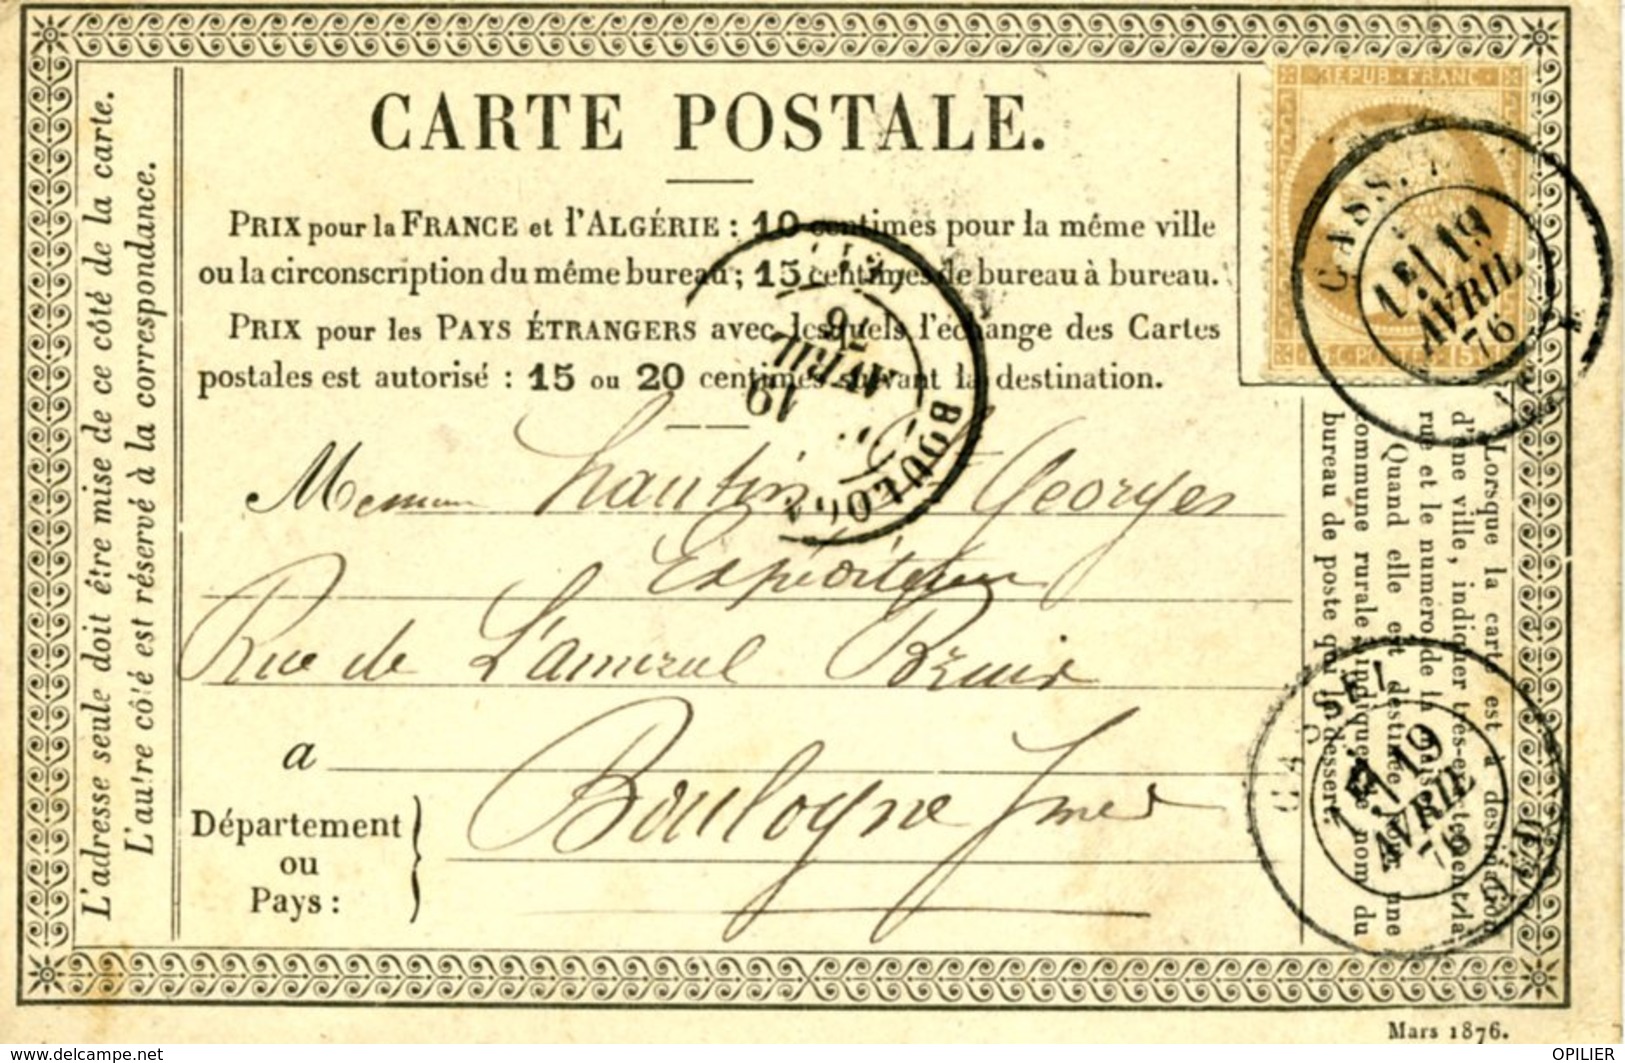 CARTE POSTALE.
PRIX pour la FRANCE et l'ALGÉRIE : 10 centimes pour la même ville
ou la circonscription du même bureau ; 15 centimes de bureau à bureau.
PRIX pour les PAYS ÉTRANGERS avec lesquels l'échange des Cartes
postales est autorisé : 15 ou 20 centimes suivant la destination.
L'adresse seule doit être mise de ce côté de la carte.
L'autre côté est réservé à la correspondance.
REPUB · FRANC
15 C · POSTES · 15 C
CASS
1E / 19
AVRIL
76
BOULOG
19
AVRIL
76
hautin Georges
Expéditeur
Rue de L'amiral Bruix
a
Boulogne s mer
Département
ou
Pays :
Lorsque la carte est à destination
d'une ville, indiquer très-exactement la
rue et le numéro de la maison.
Quand elle est destinée à une
commune rurale, indiquer le nom du
bureau de poste qui la dessert.
CASSEL
1E / 19
AVRIL
76
Mars 1876.
https://www.delcampe.net
OPILIER